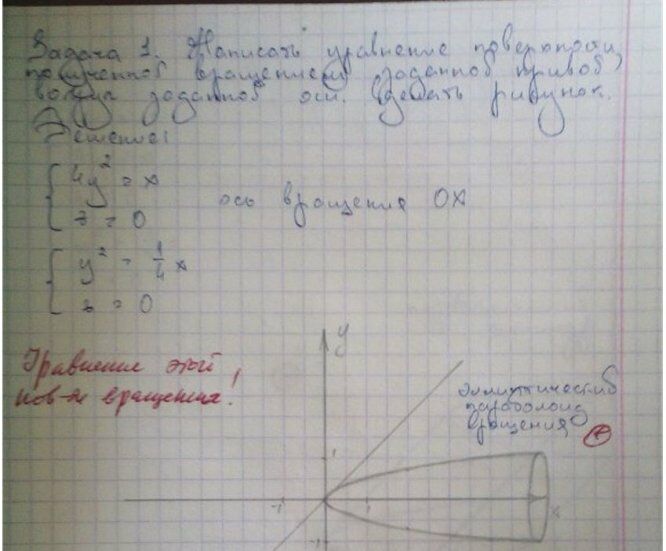 Задача 1. Написать уравнение поверхности,
полученной вращением заданной кривой
вокруг заданной оси. Сделать рисунок.
Решение:
4y² = x
z = 0
ось вращения OX
y² = 1/4 x
z = 0
Уравнение этой
пов-ти вращения!
y
эллиптический
параболоид
вращения
+
-1
1
1
-1
x